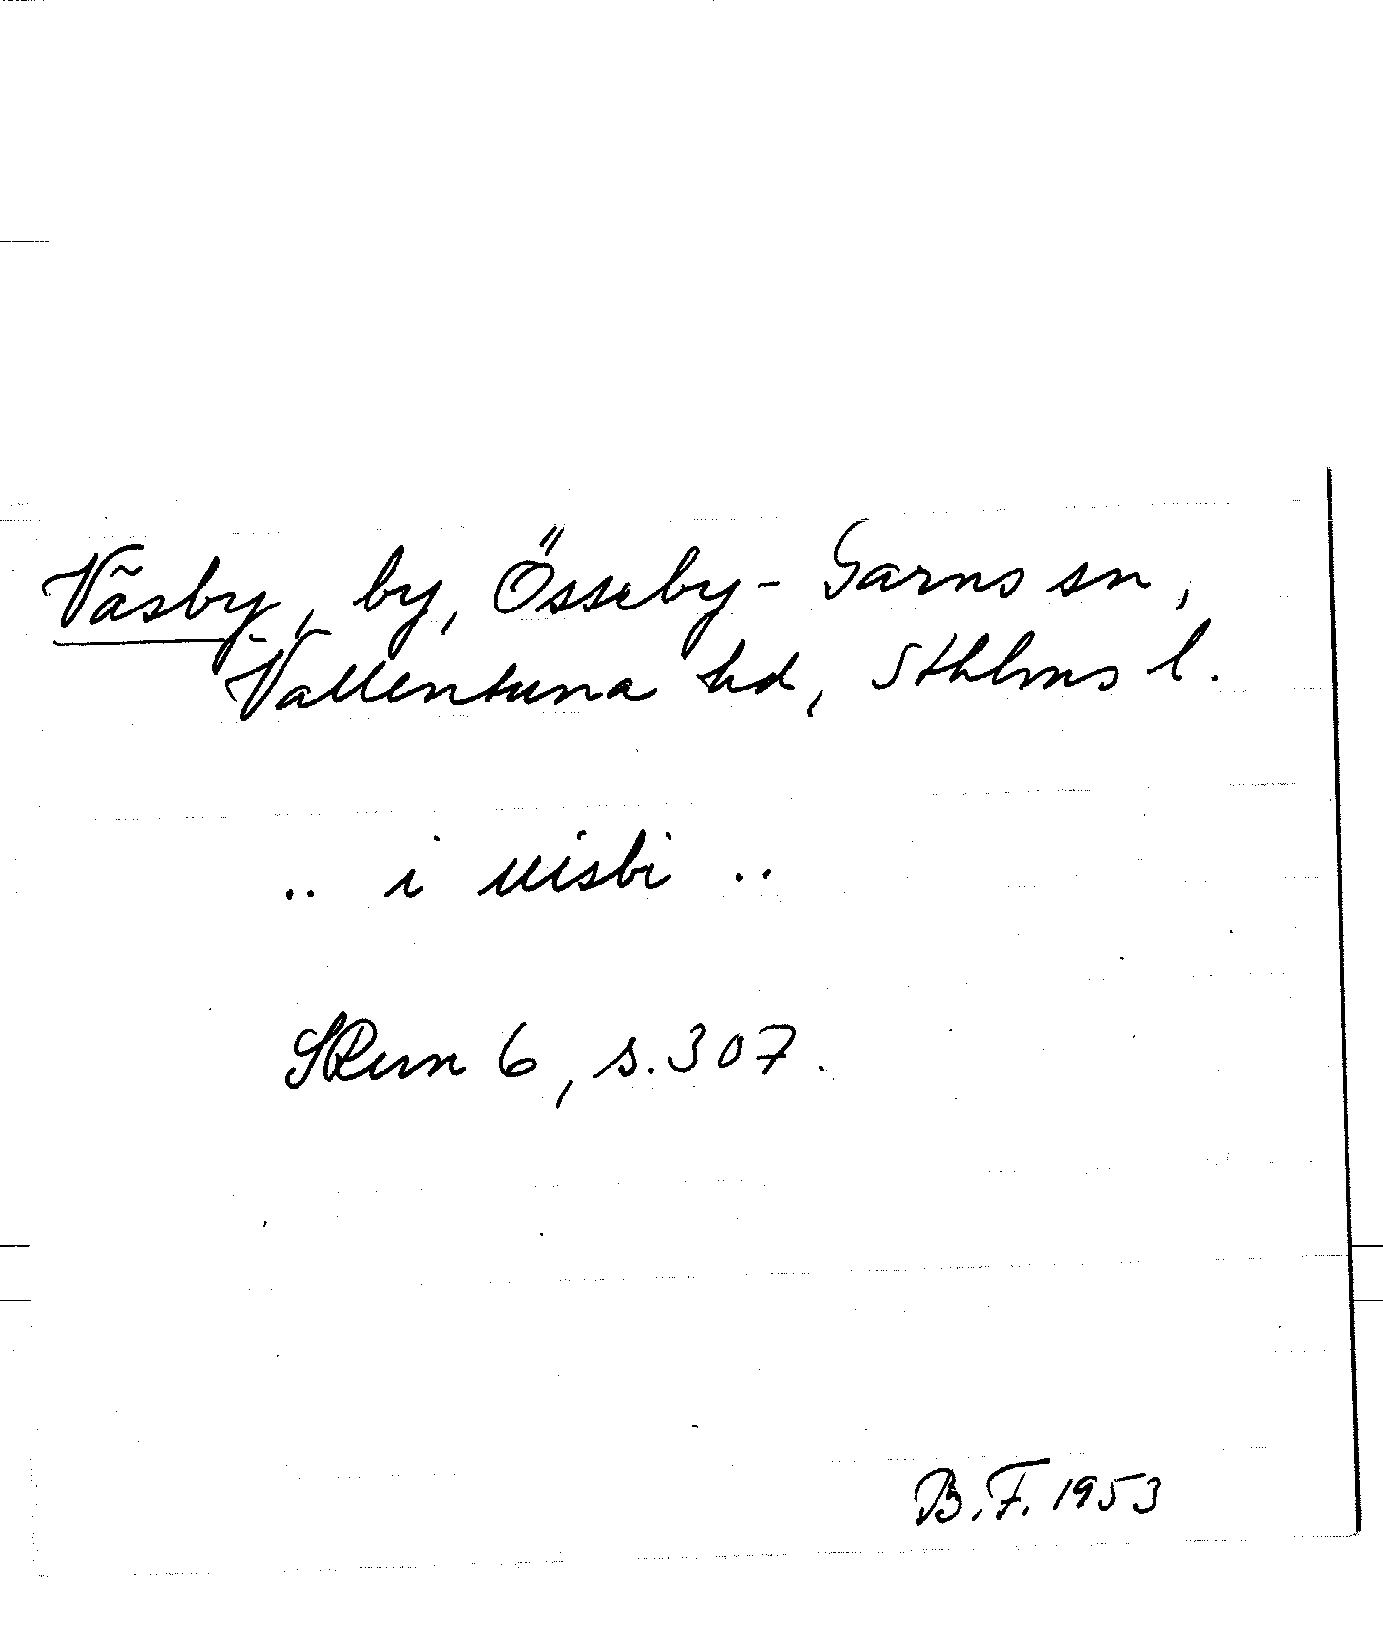 Väsby, by, Össeby-Garns sn,
Vallentuna hd, Sthlms l.
.. i uisbi ..
SRun 6, s. 307.
B.F. 1953